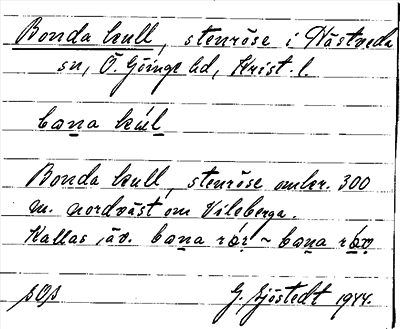 Bonda kull, stenröse i Västveda
sn, Ö. Göinge hd, Krist. l.
bona kul
Bonda kull, stenröse omkr. 300
m. nordväst om Vileberga.
Kallas äv. bona rør ~ bona røv
SOS G. Sjöstedt 1944.